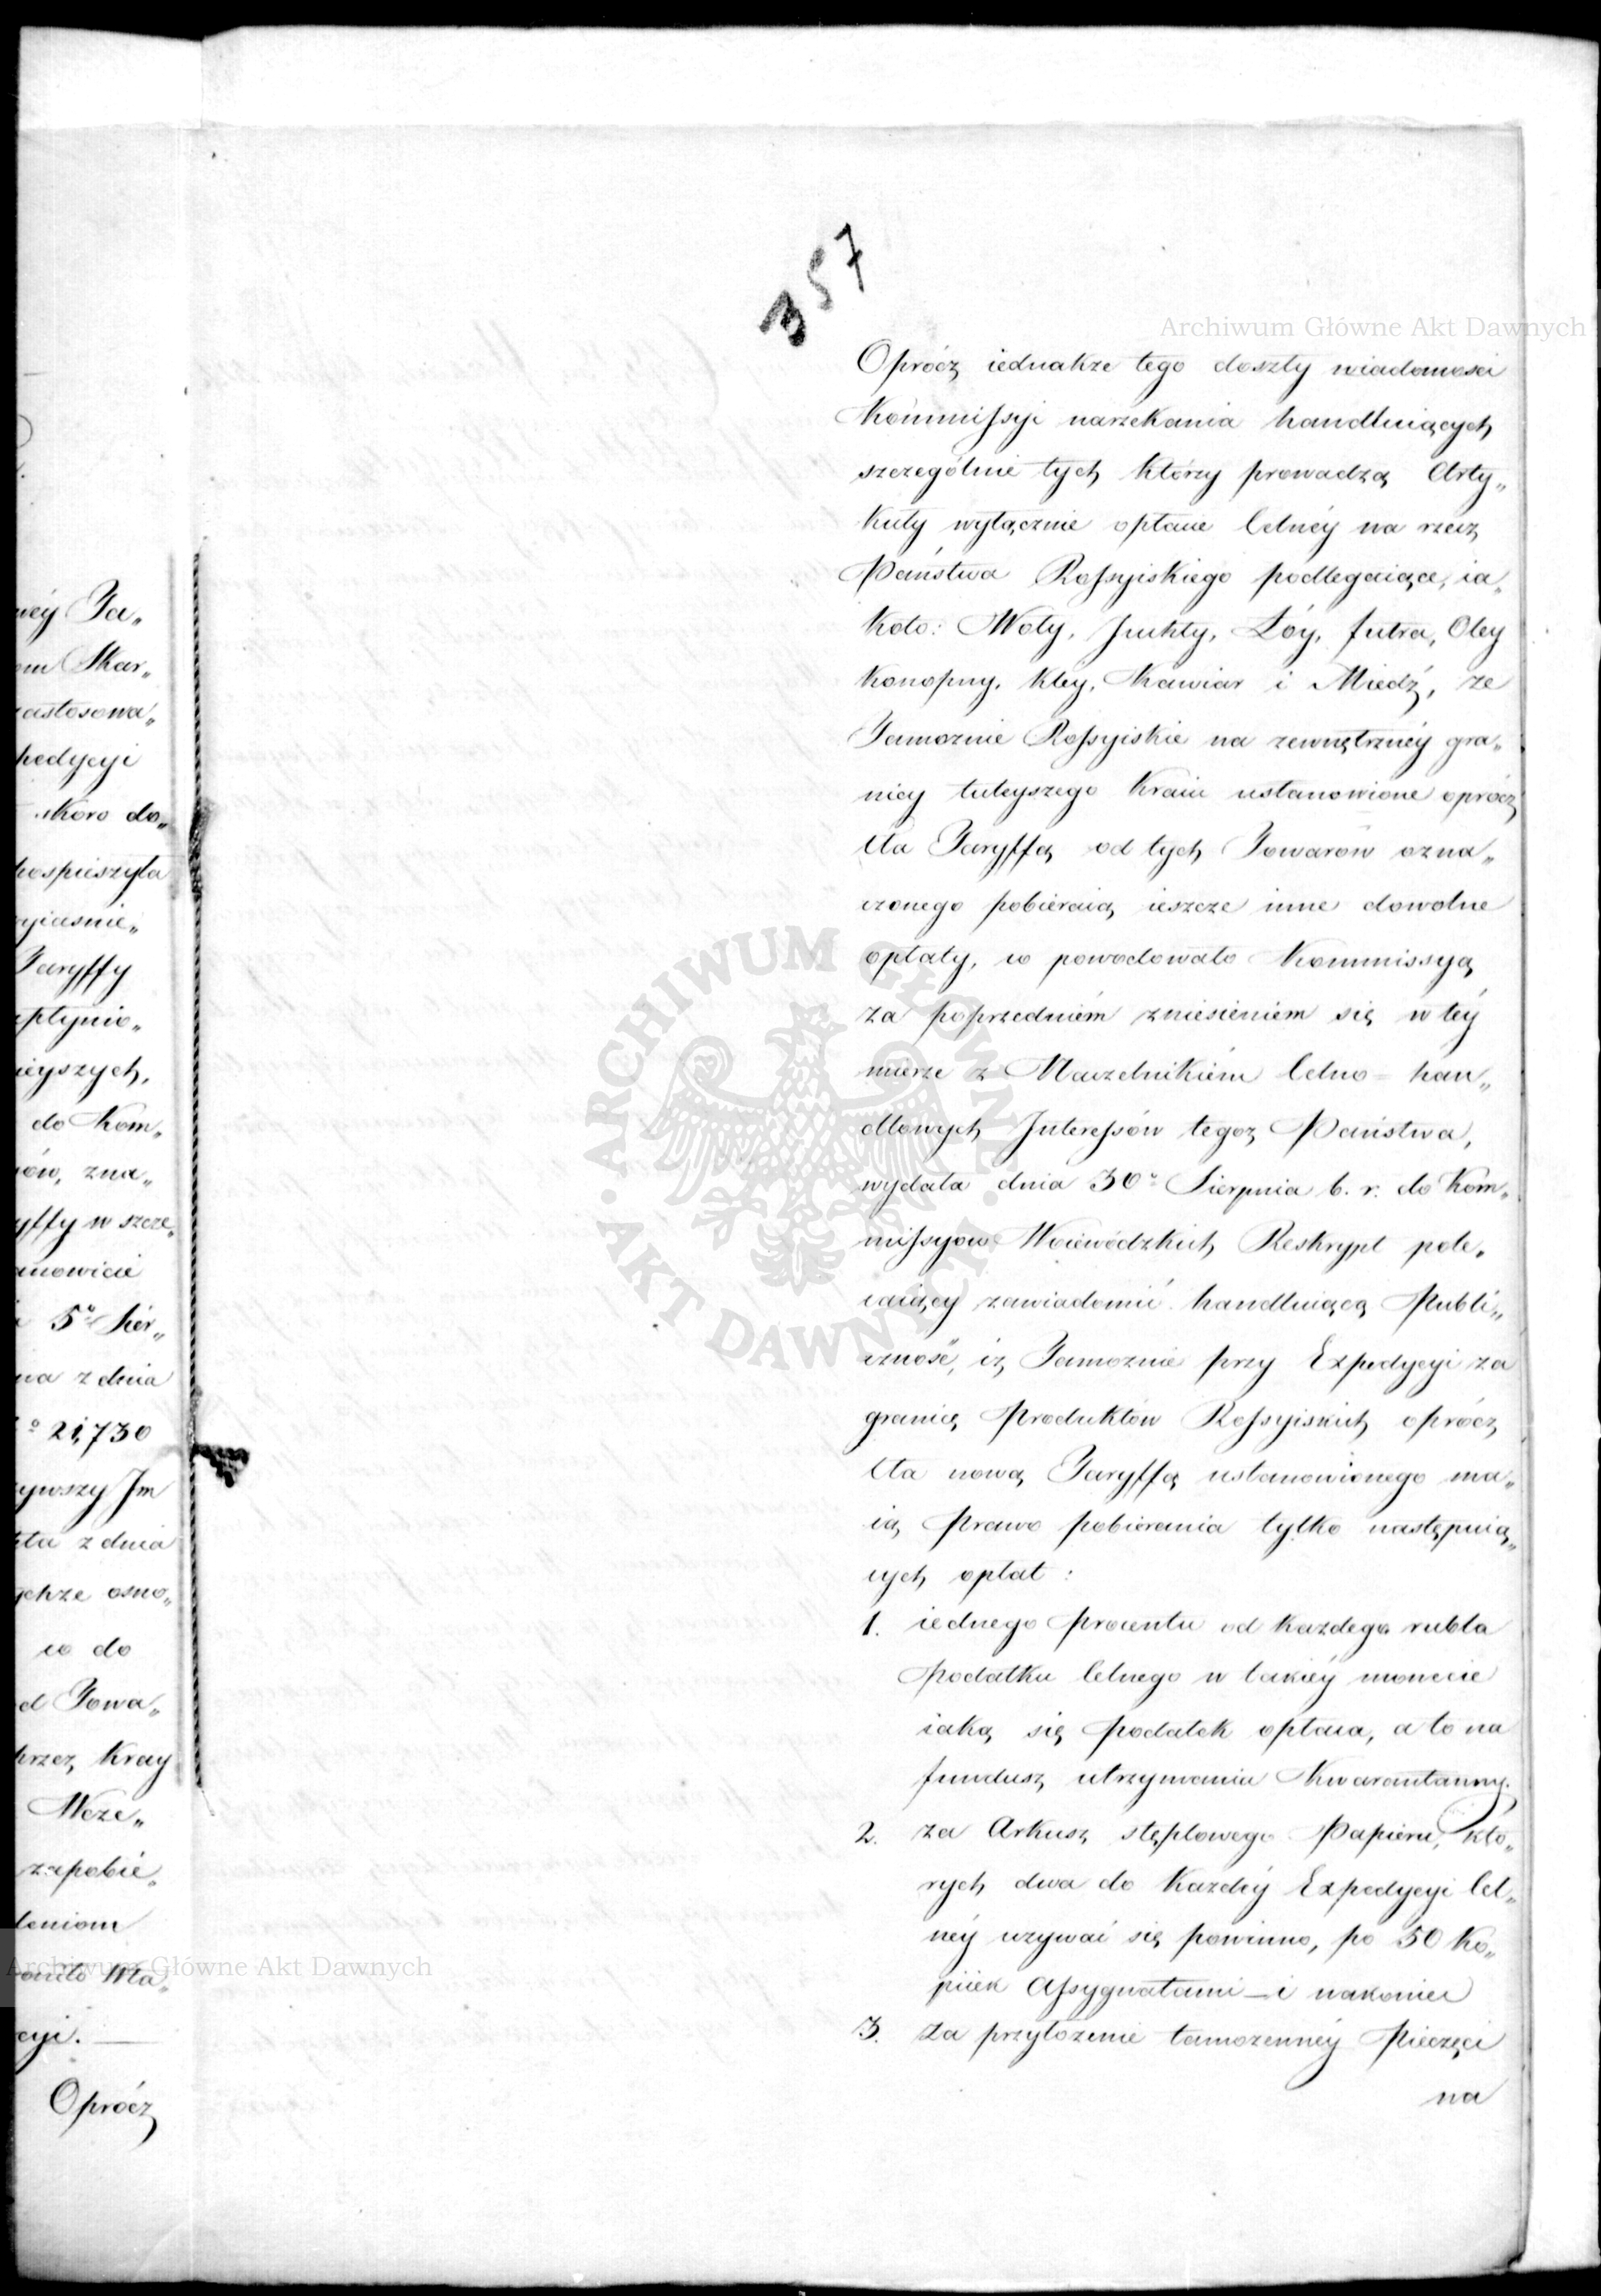 357
Archiwum Główne Akt Dawnych
Oprócz iednakże tego doszły wiadomości
Kommissyi narzekania handluiących
szczególnie tych którzy prowadzą Arty„
kuły wyłącznie opłacie Celnéy na rzecz
Państwa Rossyiskiego podlegaiące, ia„
koto: Woły, Juchty, Łóy, futra, Oley
konopny, kley, Kawiar i Miedź, że
Tamożnie Rossyiskie na zewnętrznéy gra„
nicy tuteyszego Kraiu ustanowione oprócz
Cła Taryffą od tych Towarów ozna„
czonego pobieraią ieszcze inne dowolne
opłaty, co powodowało Kommissyą
za poprzedniém zniesieniem się w téy
mierze z Naczelnikiém Celno=han„
dlowych Interessów tegoż Państwa,
wydała dnia 30º Sierpnia b. r. do Kom„
missyów Woiewódzkich Reskrypt pole„
caiący zawiadomić handluiącą Publi„
czność, iż Tamożnie przy Expedycyi za
granicę Produktów Rossyiskich oprócz
Cła nową Taryffą ustanowionego ma„
ią Prawo pobierania tylko następuią„
cych opłat:
1. iednego Procentu od każdego rubla
Podatku Celnego w takiéy monecie
iaką się podatek opłaca, a to na
fundusz utrzymania Kwarantanny.
2. za Arkusz stęplowego Papieru, któ„
rych dwa do każdéy Expedycyi Cel„
néy używać się powinno, po 50 ko„
piiek Assygnatami — i nakoniec
3. za przyłożenie tamożennéy Pieczęci
na
néy Ta„
om Skar„
zastosowa„
pedycyi
skoro do„
pospieszyła
yiaśnie„
Taryffy
płynio„
ieyszych,
do Kom„
ów, zna„
yffy w szcze„
mowicie
i 5º Sier„
na z dnia
º 21,730
zywszy Im
ta z dnia
ychże osno„
co do
d Towa„
przez Kray
Weze„
zapobie„
leniom
Wła„
cyi. —
Oprócz
Archiwum Główne Akt Dawnych
ARCHIWUM GŁÓWNE · AKT DAWNYCH ·